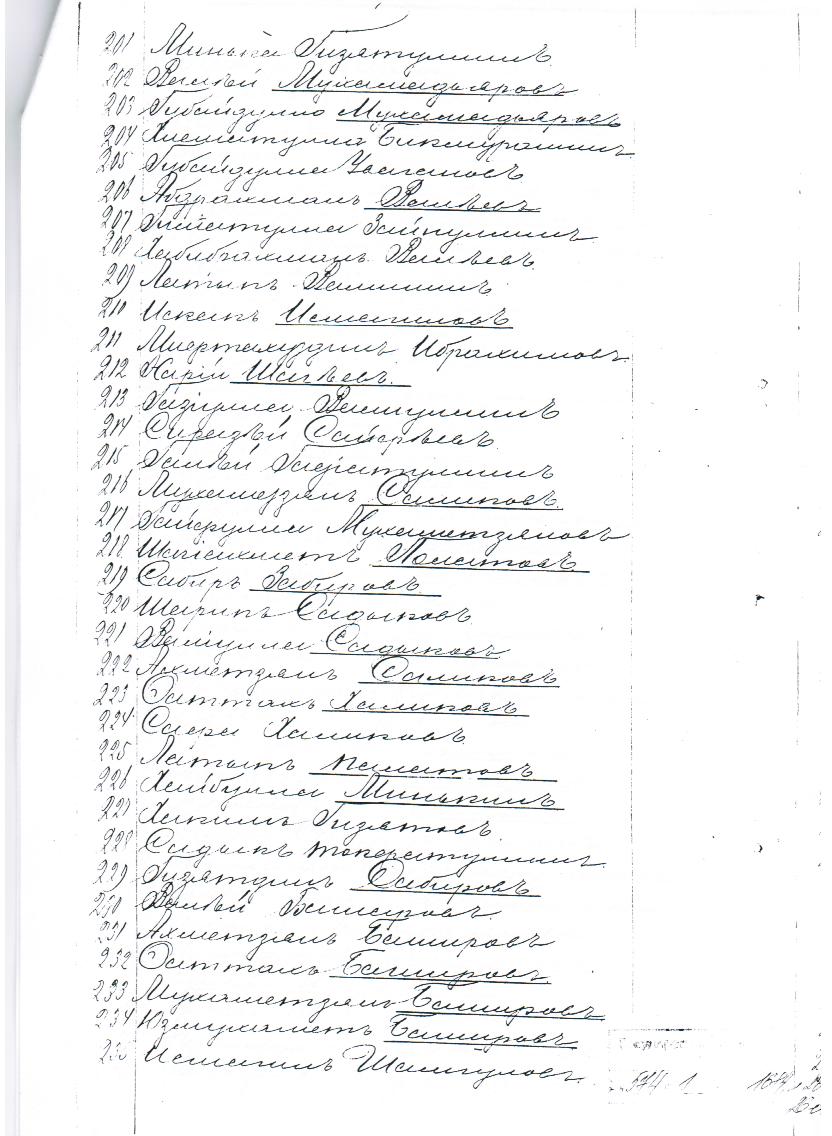 201 Миньяга Гизятуллинъ
202 Валѣй Мухамадьяровъ
203 Губайдулла Мухамадьяровъ
204 Хисматулла Бикмурзинъ
205 Губайдулла Усмановъ
206 Абдрахманъ Валѣевъ
207 Гинатулла Зайнуллинъ
208 Хабибрахманъ Валѣевъ
209 Латыпъ Валишинъ
210 Искакъ Исмагиловъ
211 Мифтахуддинъ Ибрагимовъ
212 Карій Шагѣевъ
213 Газзулла Валиуллинъ
214 Сиразѣй Сайфѣевъ
215 Галѣй Гадіатуллинъ
216 Мухамедзянъ Салиховъ
217 Гайфулла Мухаметзяновъ
218 Шагіахметъ
219 Сабиръ Забировъ
220 Шарипъ Садыковъ
221 Валіулла Садыковъ
222 Ахметзянъ Салиховъ
223 Саттахъ Халиковъ
224 Сафа Халиковъ
225 Латыпъ
226 Хайбулла Минькинъ
227 Хакимъ Гизятовъ
228 Садыкъ
229 Гизятдинъ Сабировъ
230 Валѣй Башировъ
231 Ахметзянъ Башировъ
232 Саттахъ Башировъ
233 Мухаметзянъ Башировъ
234 Юзмухаметъ Башировъ
235 Исмагилъ Шамгуловъ
574 1